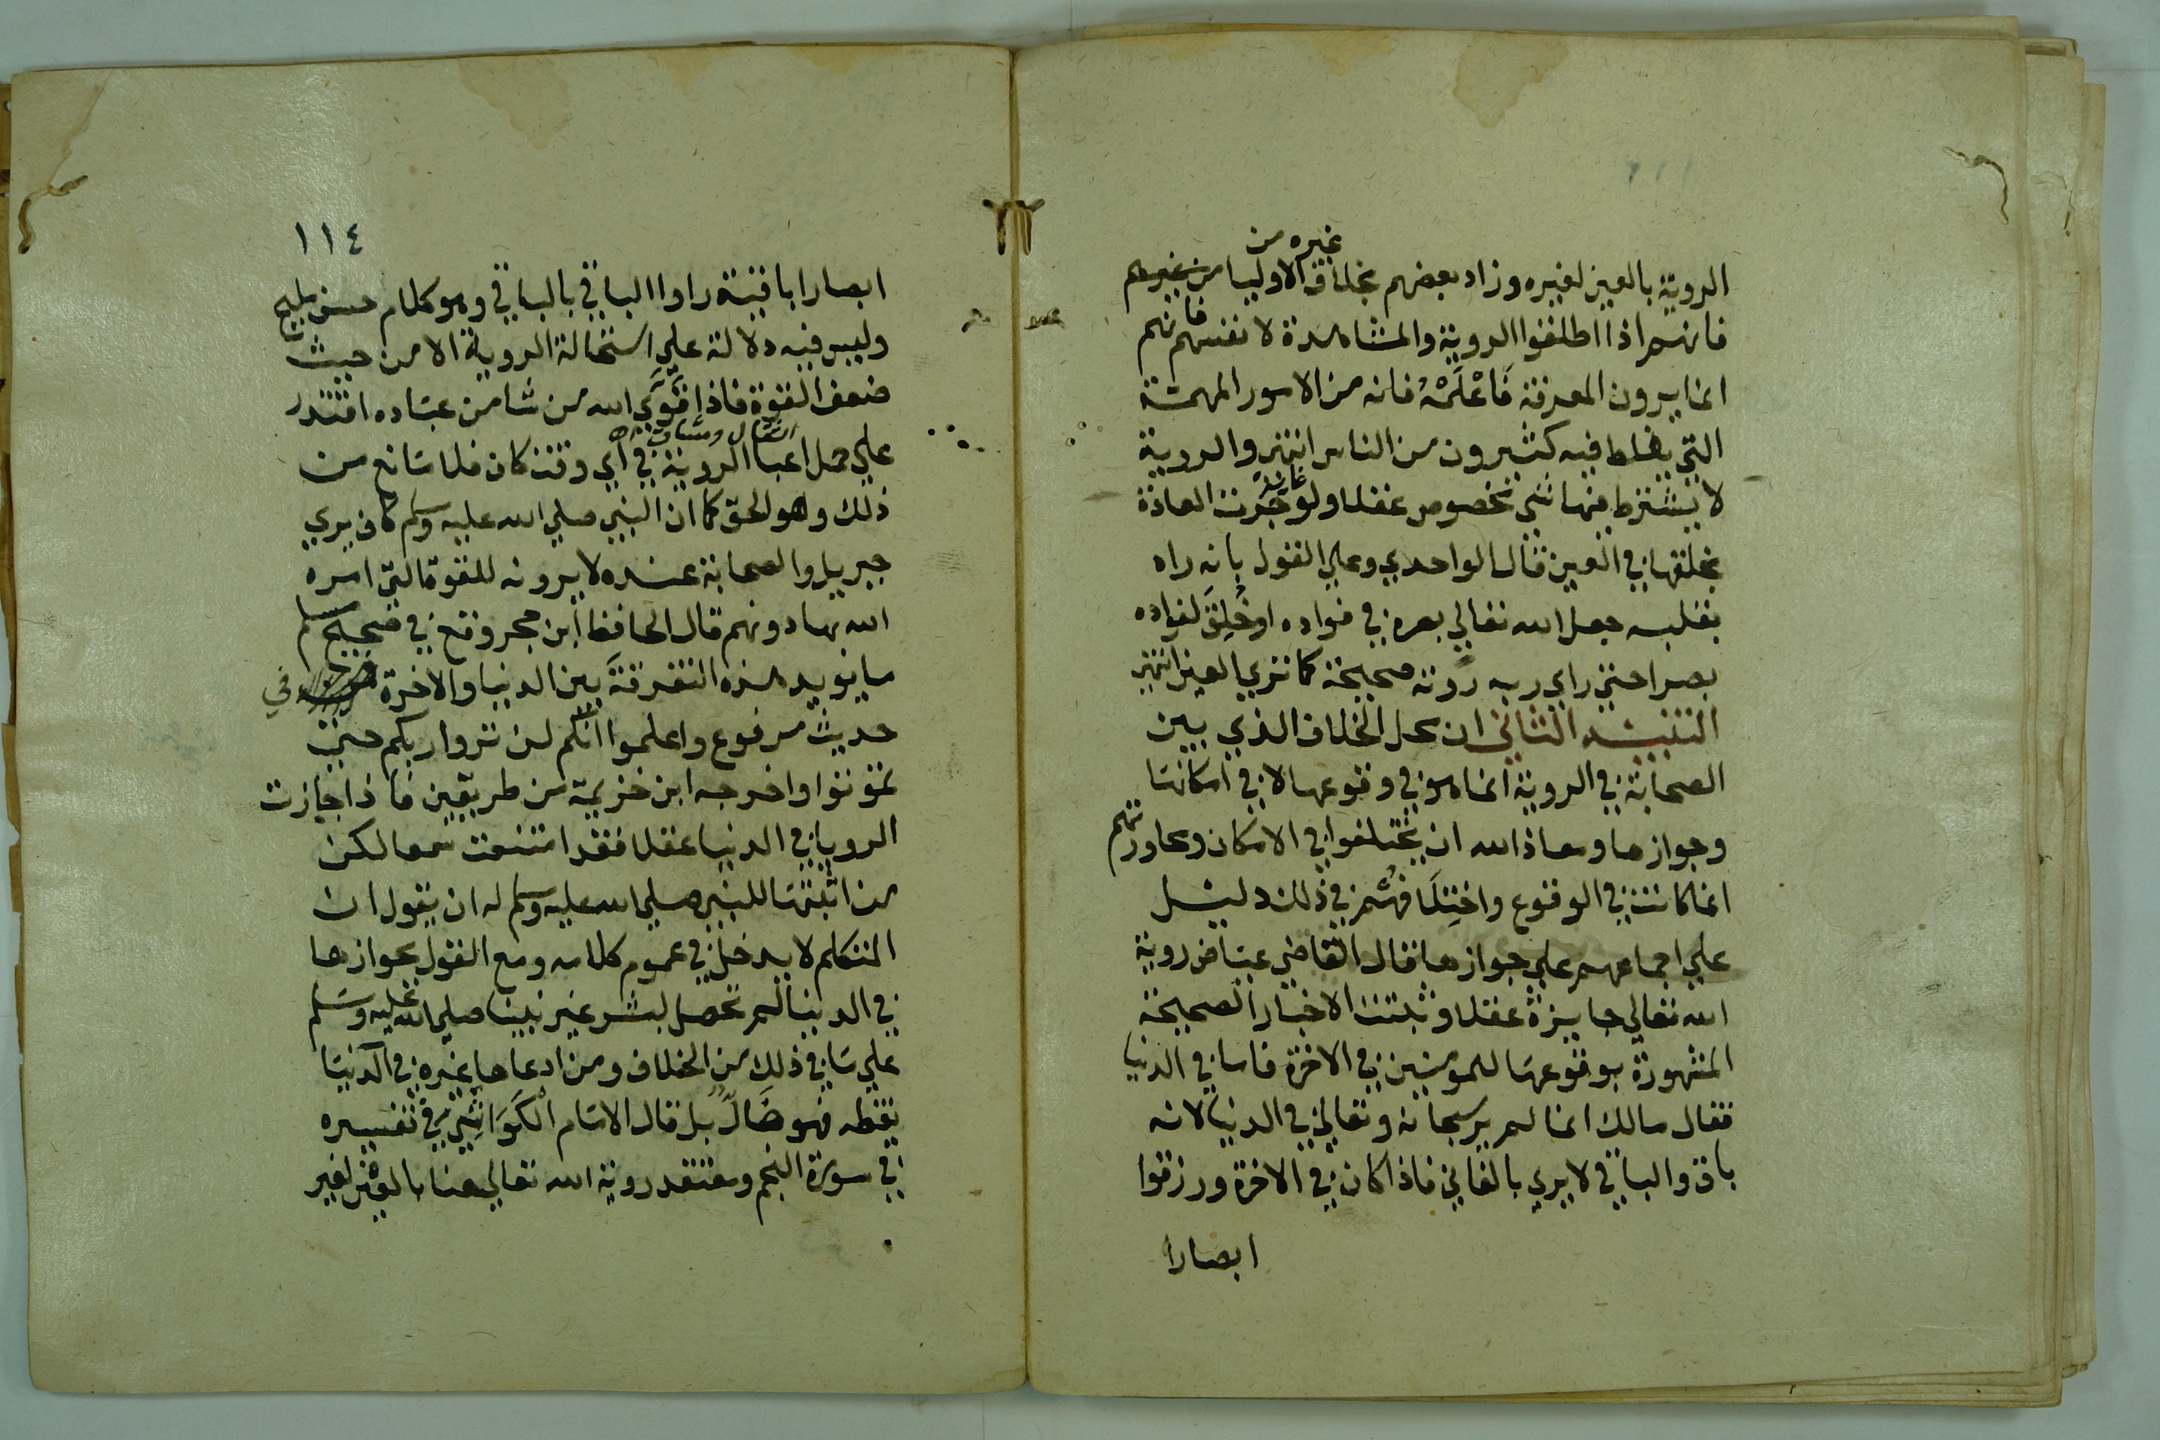 غيره من
الروية بالعين لغيره وزاد بعضهم بخلاف الاوليا من غيرهم
فانهم اذا اطلقوا الروية والمشاهدة لانفسهم فانهم
انما يريدون المعرفة فَاعْلَمْهُ فانه من الامور المهمة
التي يغلط فيه كثيرون من الناس انتهى والروية
لا يشترط فيها شي مخصوص عقلا ولو جرت العادة
بخلقها في العين قال الواحدي وعلي القول بانه راه
بقلبه جعل الله تعالي بصره في فواده او خُلِقَ لفواده
بصرا حتي راي ربه روية صحيحة كما تري العين انتهى
التنبيه الثاني ان محل الخلاف الذي بين
الصحابة في الروية انما هو في وقوعها لا في امكانها
وجوازها ومعاذ الله ان يختلفوا في الامكان ومحاورتهم
انما كانت في الوقوع واختِلَافُهُم في ذلك دليل
علي اجماعهم علي جوازها فقال القاضي عياض روية
الله تعالي جايزة عقلا وثبتت الاخبار الصحيحة
المشهورة بوقوعها للمومنين في الاخرة فاما في الدنيا
فقال مالك انما لم ير سبحانه وتعالي في الدنيا لانه
باق والباقي لا يري بالفاني فاذا كان في الاخرة ورزقوا
ابصارا
١١٤
ابصارا باقية راوا الباقي بالباقي وهو كلام حسن مليح
وليس فيه دلالة علي استحالة الروية الا من حيث
ضعف القوة فاذا قَوَّي الله من شا من عباده اقتدر
علي حمل اعبا الروية في اي وقت كان فلا مانع من
ذلك وهو الحق كما ان النبي صلي الله عليه وسلم كان يري
جبريل والصحابة عنده لا يرونه للقوة التي امره
الله بها دونهم قال الحافظ ابن حجر وقع في صحيح مسلم
ما يويد هذه التفرقة بين الدنيا والاخرة في
حديث مرفوع واعلموا انكم لن تروا ربكم حتي
تموتوا واخرجه ابن خزيمة من طريقين فاذا جازت
الرويا في الدنيا عقلا فقد امتنعت سمعا لكن
من اثبتها للنبي صلي الله عليه وسلم له ان يقول ان
المتكلم لا يدخل في عموم كلامه ومع القول بجوازها
في الدنيا لم تحصل لبشر غير نبينا صلي الله عليه وسلم
علي ما في ذلك من الخلاف ومن ادعاها لغيره في الدنيا
يقظه فهو ضَالٌّ بل قال الامام الكَوَاشِي في تفسيره
في سورة النجم ومعتقد روية الله تعالي هنا بالعين لغير